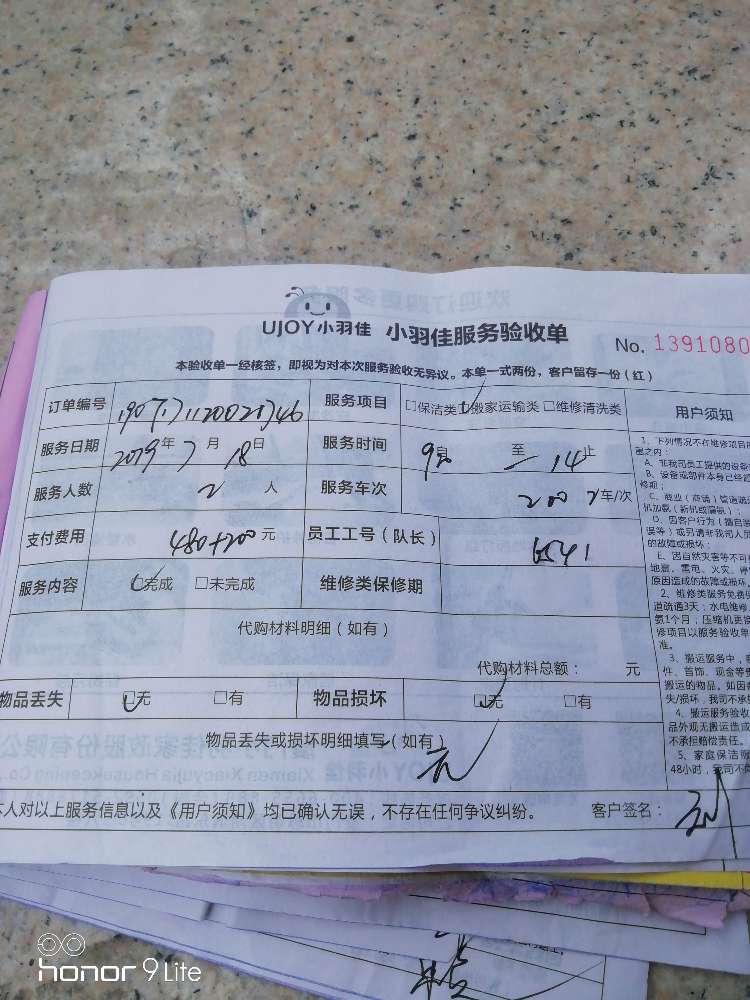 UJOY小羽佳 小羽佳服务验收单 No. 1391080
本验收单一经核签，即视为对本次服务验收无异议。本单一式两份，客户留存一份（红）
订单编号 服务项目 □保洁类 □搬家运输类 □维修清洗类 用户须知
服务日期 2019年7月18日 服务时间 自 至 14止
服务人数 2人 服务车次 车/次
支付费用 480+200元 员工工号（队长） 6541
服务内容 □完成 □未完成 维修类保修期
代购材料明细（如有）
代购材料总额： 元
物品丢失 □无 □有 物品损坏 □无 □有
物品丢失或损坏明细填写（如有）
人对以上服务信息以及《用户须知》均已确认无误，不存在任何争议纠纷。 客户签名：
1、下列情况不在维修项目
之内：
A、非我司员工提供的设备
B、设备或部件本身已经超
修期；
C、商业（商铺）管道疏
机加氨（新机或漏氨）；
D、因客户行为（擅自
误等）或另请非我司人员
的故障或损坏；
E、因自然灾害等不可
地震、雷电、火灾、停
原因造成的故障或损坏
2、维修类服务免费
道疏通3天；水电维修
氨1个月；压缩机更换
修项目以服务验收单
准。
3、搬运服务中，
件、首饰、现金等
搬运的物品。如因
失/损坏，我司不承
4、搬运服务验收
品外观无搬运造成
不承担赔偿责任。
5、家庭保洁服
48小时，我司不
honor 9 Lite